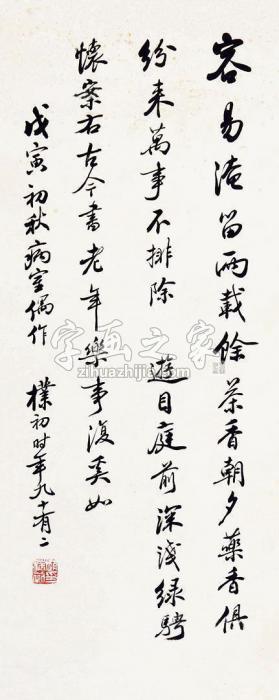 容易淹留两载馀茶香朝夕药香俱
纷来万事不排除 游目庭前深浅绿骋
怀案右古今书老年乐事复奚如
戊寅初秋病室偶作 朴初时年九十有二
字画之家
zihuazhijia.com